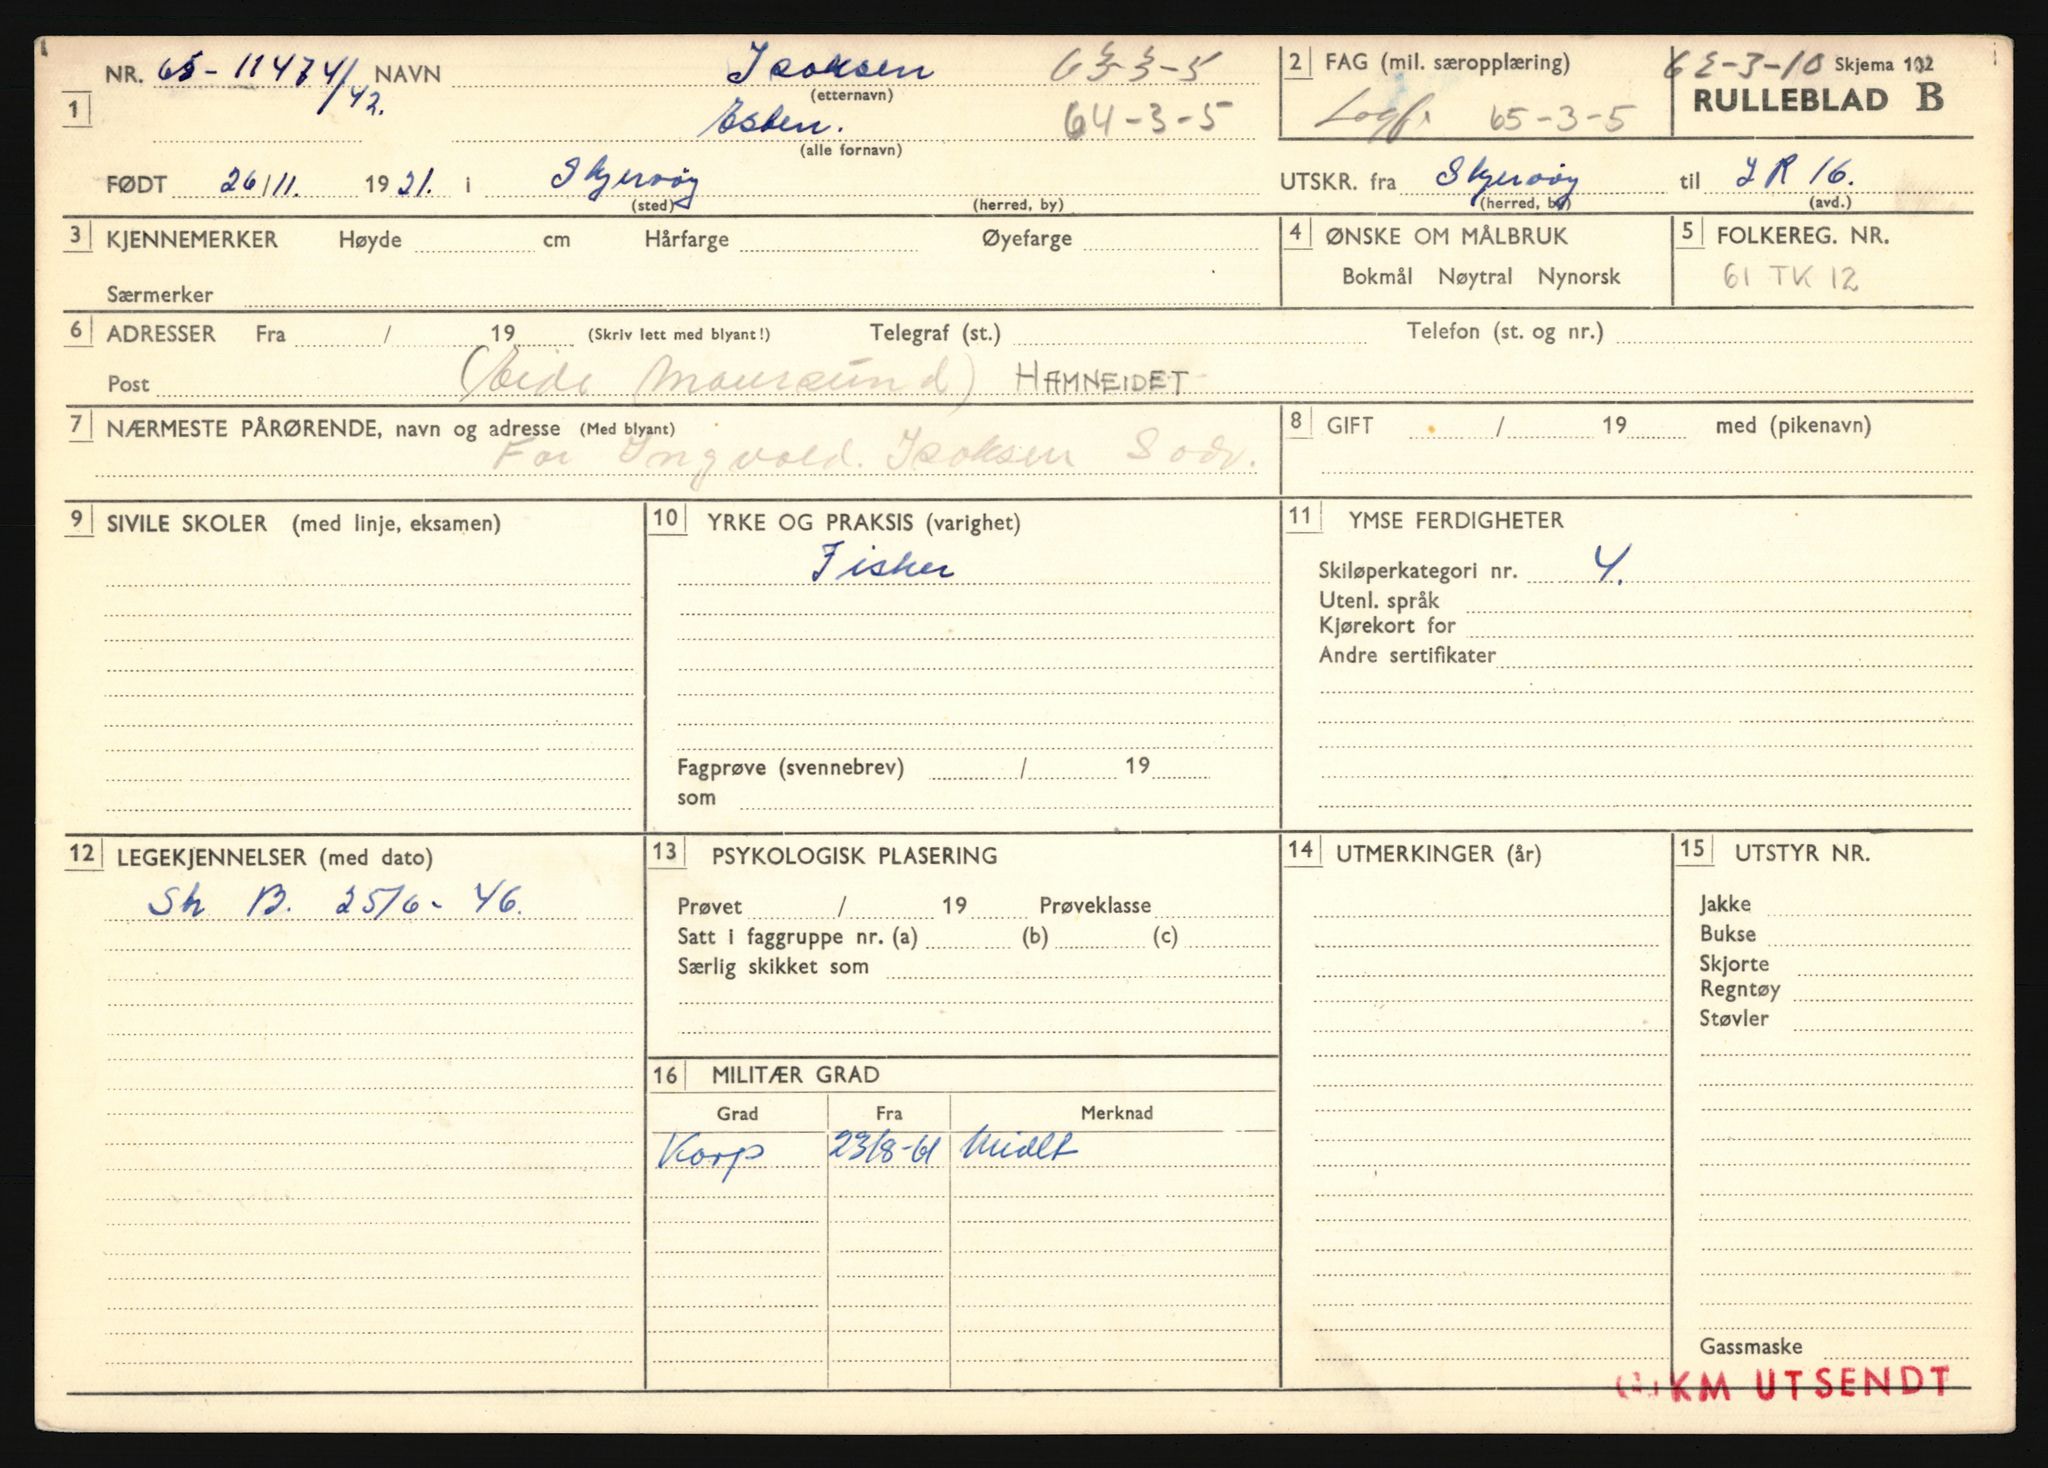 NR. 65-11474/42. NAVN Isaksen 63-3-5
(etternavn)
1 Esben. 64-3-5
(alle fornavn)
FØDT 26/11. 1921. i Skjervøy
(sted) (herred, by)
2 FAG (mil. særopplæring)
Lagf. 65-3-5
62-3-10 Skjema 102
RULLEBLAD B
UTSKR. fra Skjervøy til IR 16.
(herred, by) (avd.)
3 KJENNEMERKER Høyde cm Hårfarge Øyefarge
Særmerker
4 ØNSKE OM MÅLBRUK
Bokmål Nøytral Nynorsk
5 FOLKEREG. NR.
61 TK 12
6 ADRESSER Fra / 19 (Skriv lett med blyant!) Telegraf (st.) Telefon (st. og nr.)
Post (Eide Maursund) HAMNEIDET
7 NÆRMESTE PÅRØRENDE, navn og adresse (Med blyant)
Far Ingvald. Isaksen Sadr.
8 GIFT / 19 med (pikenavn)
9 SIVILE SKOLER (med linje, eksamen)
10 YRKE OG PRAKSIS (varighet)
Fisker
Fagprøve (svennebrev) / 19
som
11 YMSE FERDIGHETER
Skiløperkategori nr. 4.
Utenl. språk
Kjørekort for
Andre sertifikater
12 LEGEKJENNELSER (med dato)
St B. 25/6-46.
13 PSYKOLOGISK PLASERING
Prøvet / 19 Prøveklasse
Satt i faggruppe nr. (a) (b) (c)
Særlig skikket som
14 UTMERKINGER (år)
15 UTSTYR NR.
Jakke
Bukse
Skjorte
Regntøy
Støvler
Gassmaske
16 MILITÆR GRAD
Grad Fra Merknad
Korp 23/8-61 Midlt
KM UTSENDT